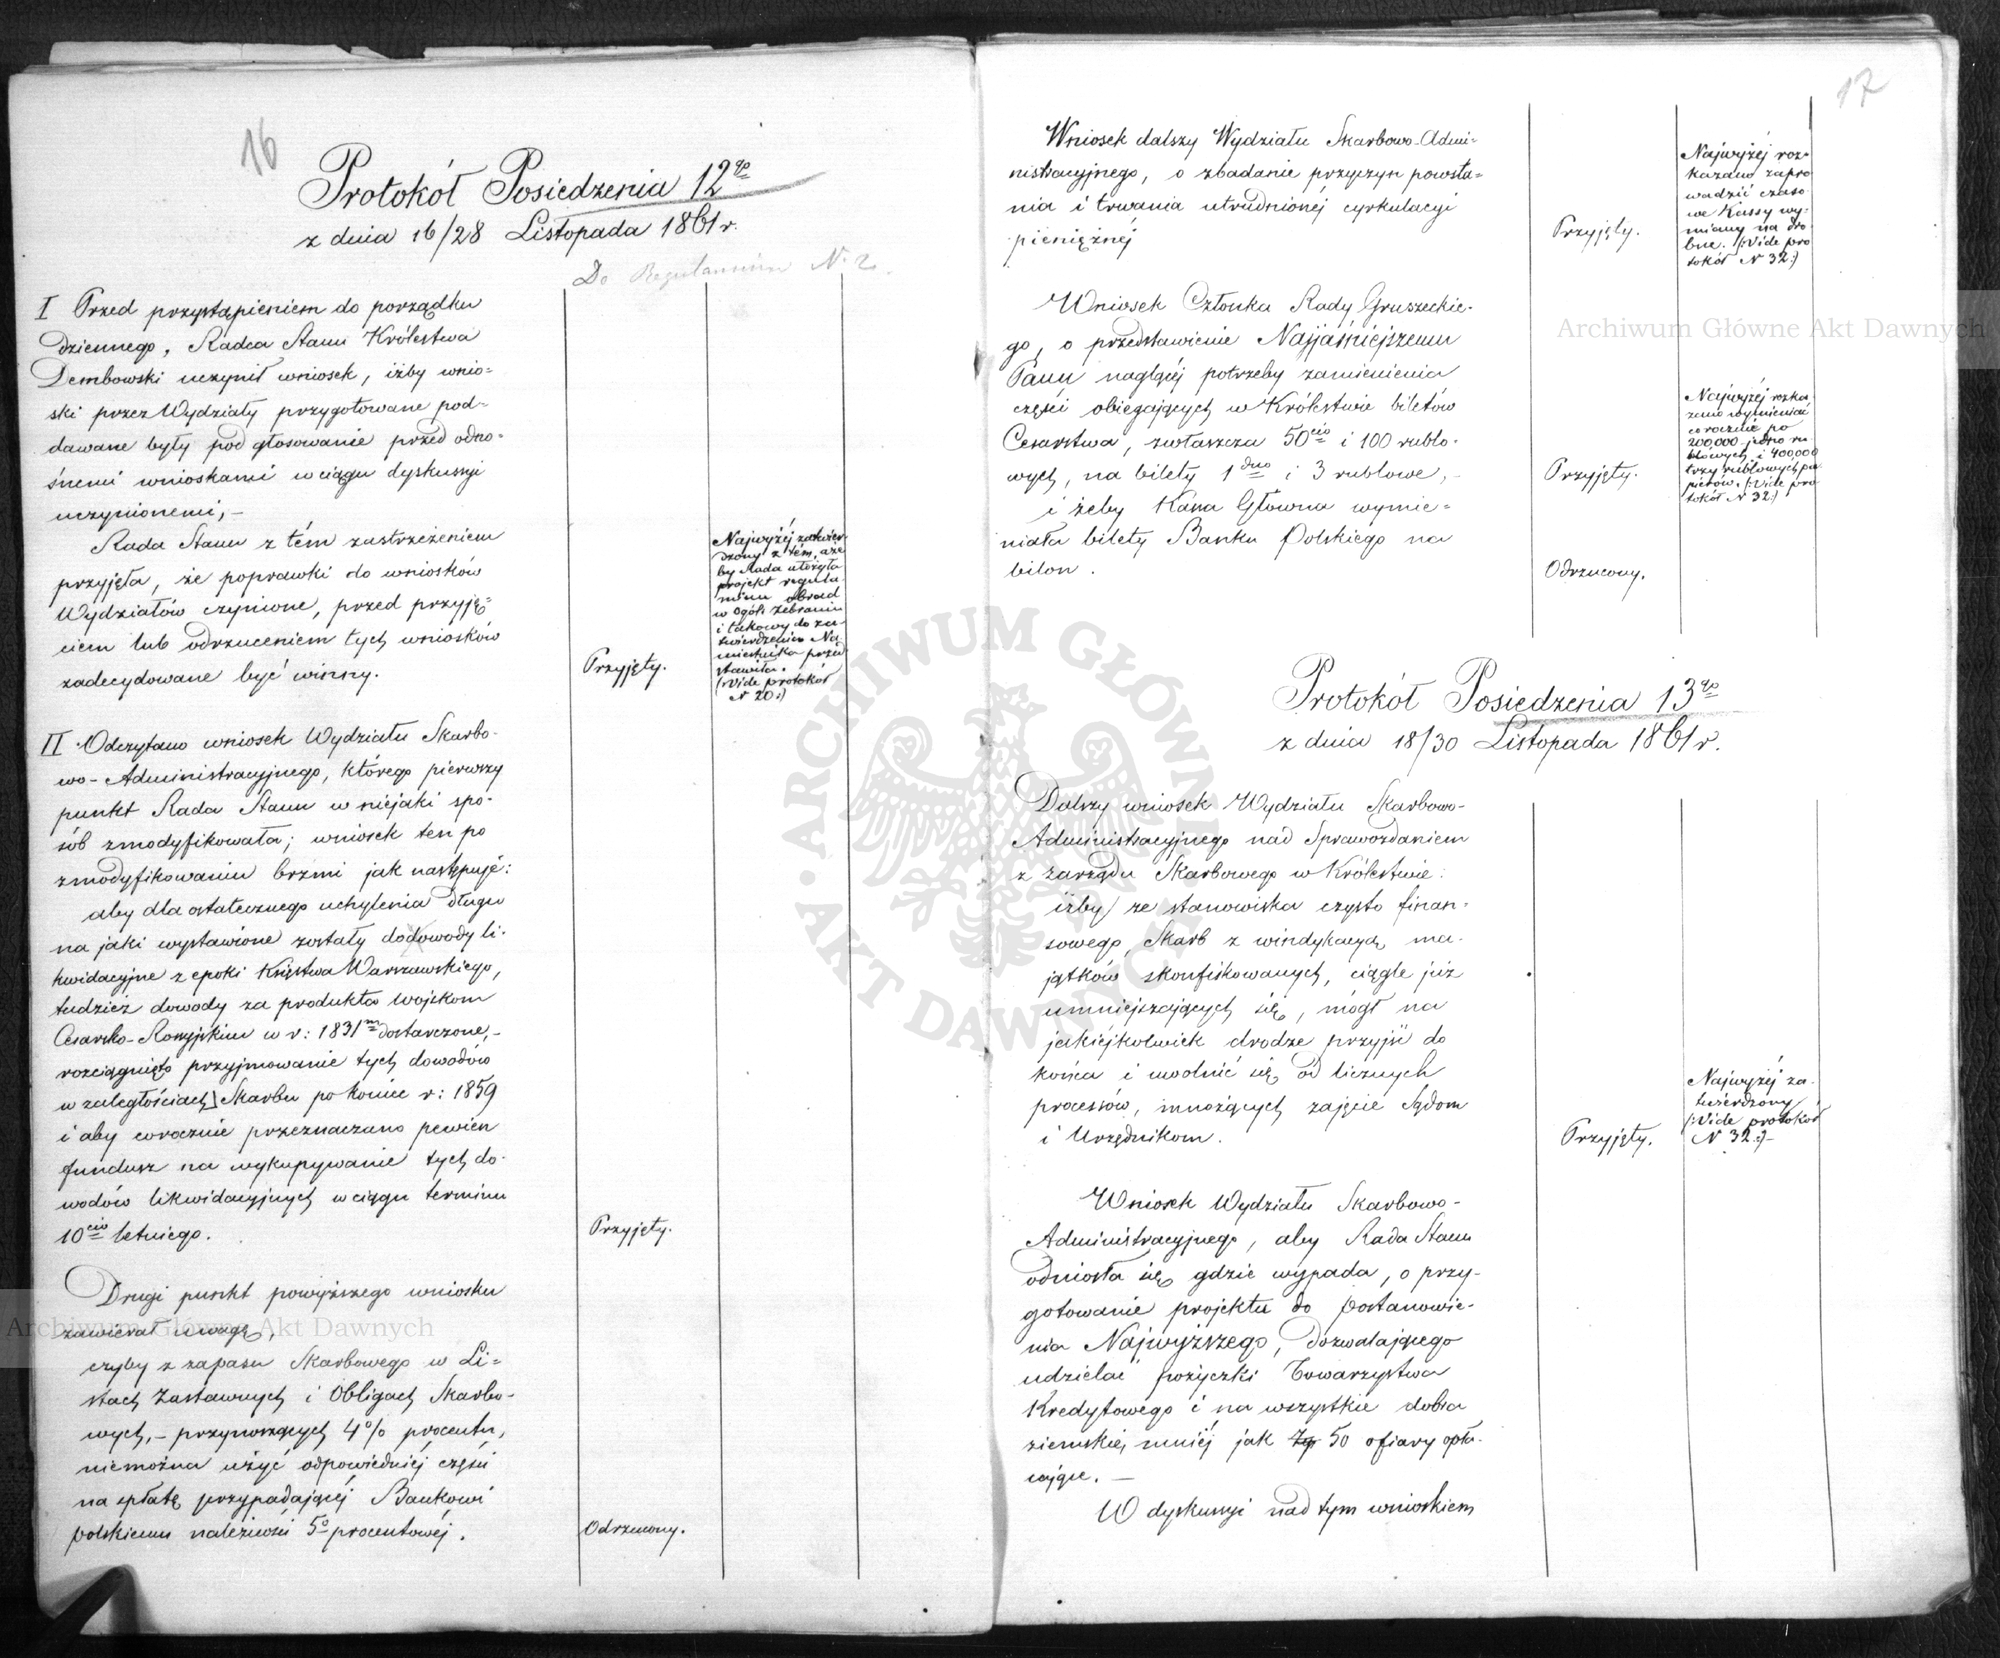 16
Protokół Posiedzenia 12go
z dnia 16/28 Listopada 1861 r.
Do Regulaminu N. 2.
I Przed przystąpieniem do porządku
dziennego, Radca Stanu Królestwa
Dembowski uczynił wniosek, iżby wnio=
ski przez Wydziały przygotowane pod=
dawane były pod głosowanie przed odno=
śnemi wnioskami w ciągu dyskussyi
uczynionemi,-
Rada Stanu z tém zastrzeżeniem
przyjęła, że poprawki do wniosków
Wydziałów czynione, przed przyję=
ciem lub odrzuceniem tych wniosków
zadecydowane być winny.
Przyjęty.
Najwyżéj zatwier=
dzony z tém, aże
by Rada ułożyła
projekt regula
minu obrad
w Ogól: Zebraniu
i takowy do za=
twierdzenia Na
miestnika przed
stawiła.
(:Vide protokół
N 20:)
II Odczytano wniosek Wydziału Skarbo-
wo-Administracyjnego, którego pierwszy
punkt Rada Stanu w niejaki spo-
sób zmodyfikowała; wniosek ten po
zmodyfikowaniu brzmi jak następuje:
aby dla ostatecznego uchylenia długu
na jaki wystawione zostały dodowody li-
kwidacyjne z epoki Księstwa Warszawskiego,
tudzież dowody za produkta wojskom
Cesarsko-Rossyjskim w r: 1831m dostarczone,-
rozciągnięto przyjmowanie tych dowodów
w zaległościach Skarbu po koniec r: 1859
i aby corocznie przeznaczano pewien
fundusz na wykupywanie tych do-
wodów likwidacyjnych w ciągu terminu
10cio letniego.
Przyjęty.
Drugi punkt powyższego wniosku
zawierał uwagę,
czyby z zapasu Skarbowego w Li=
stach Zastawnych i Obligach Skarbo-
wych,- przynoszących 4% procentu,
niemożna użyć odpowiedniéj części
na spłatę przypadającéj Bankowi
polskiemu należności 5o procentowéj.
Odrzucony.
17
Wniosek dalszy Wydziału Skarbowo-Admi-
nistracyjnego, o zbadanie przyczyn powsta=
nia i trwania utrudnionéj cyrkulacyi
pieniężnéj
Przyjęty.
Najwyżéj roz-
kazano zapro
wadzić czaso
we Kassy wy-
miany na dro
bne. (:Vide pro
tokół N 32:)
Wniosek Członka Rady Gruszeckie-
go, o przedstawienie Najjaśniejszemu
Panu nagłéj potrzeby zamienienia
części obiegających w Królestwie biletów
Cesarstwa, zwłaszcza 50cio i 100 rublo-
wych, na bilety 1dno i 3 rublowe,-
Przyjęty.
Najwyżéj rozka
zano wymieniać
corocznie po
200,000 jedno ru
blowych i 400,000
trzy rublowych pa
pierów. (:Vide pro
tokół N 32:)
i żeby Kassa Główna wymie=
niała bilety Banku Polskiego na
bilon.
Odrzucony.
Protokół Posiedzenia 13go
z dnia 18/30 Listopada 1861 r.
Dalszy wniosek Wydziału Skarbowo-
Administracyjnego nad Sprawozdaniem
z zarządu Skarbowego w Królestwie:
iżby ze stanowiska czysto finan=
sowego, Skarb z windykacyą ma-
jątków skonfiskowanych, ciągle już
umniejszających się, mógł na
jakiéjkolwiek drodze przyjść do
końca i uwolnić się od licznych
processów, mnożących zajęcie Sądom
i Urzędnikom.
Przyjęty.
Najwyżéj za-
twierdzony
(:Vide protokół
N 32:)-
Wniosek Wydziału Skarbowo-
Administracyjnego, aby Rada Stanu
odniosła się gdzie wypada, o przy-
gotowanie projektu do postanowie-
nia Najwyższego, dozwalającego
udzielać pożyczki Towarzystwa
Kredytowego i na wszystkie dobra
ziemskie, mniéj jak Zp 50 ofiary opła-
cające.-
W dyskussyi nad tym wnioskiem
Archiwum Główne Akt Dawnych
Archiwum Główne Akt Dawnych
ARCHIWUM GŁÓWNE AKT DAWNYCH